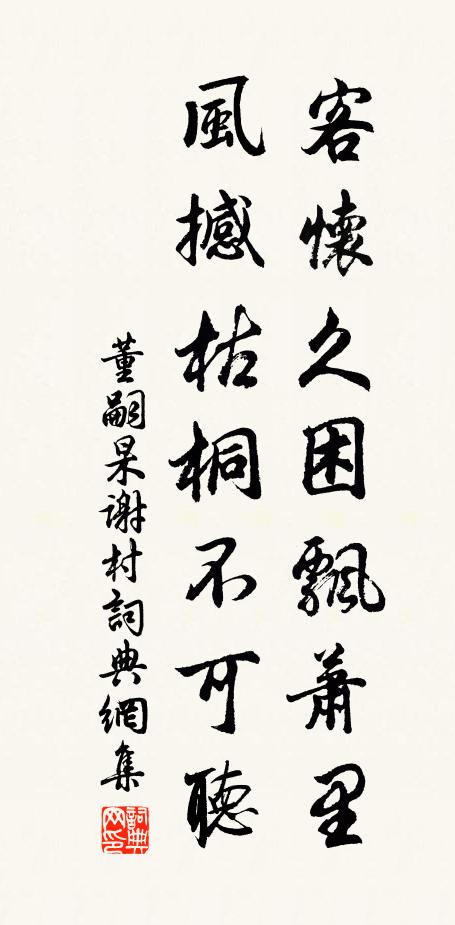 客懷久困飄蕭里
風撼枯桐不可聽
董嗣杲謝村詞典網集
詞典网印